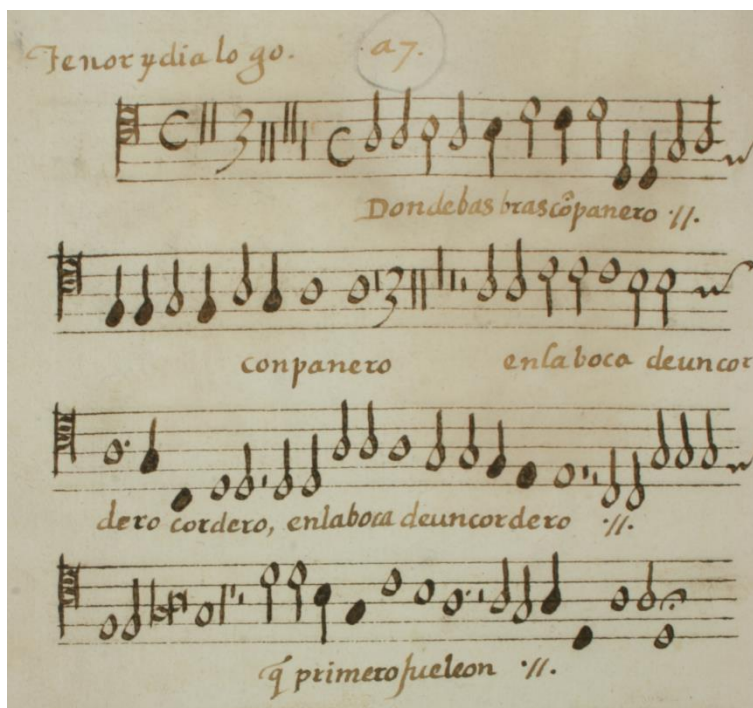 Tenor y dia lo go. a 7.
Dondebas bras cõpanero ://.
conpanero enla boca deuncor
dero cordero, enlaboca deuncordero ://.
q̃ primero fueleon ://.